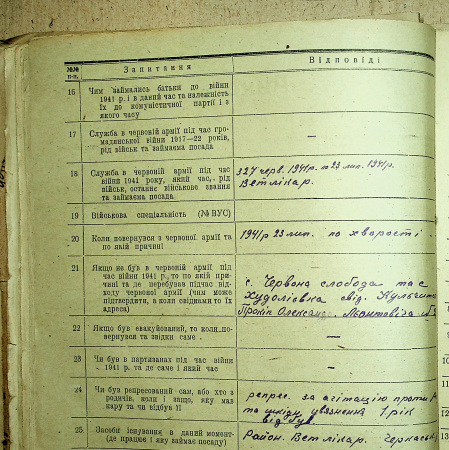 №№ п-п. Запитання Відповіді
16 Чим займались батьки до війни
1941 р. і в даний час та належність
їх до комуністичної партії і з
якого часу
17 Служба в червоній армії під час гро-
мадянської війни 1917—22 років,
рід військ та займаєма посада —
18 Служба в червоній армії під час
війни 1941 року, який час, рід
військ, останнє військове звання
та займаєма посада
З 27 черв. 1941р. по 23 лип. 1941р.
Ветлікар.
19 Військова спеціальність (№ ВУС) —
20 Коли повернувся з червоної армії та
по якій причині
1941р 23 лип. по хворості
21 Якщо не був в червоній армії під
час війни 1941 р., то по якій при-
чині та де перебував підчас від-
ходу червоної армії (чим може
підтвердити, а коли свідками то їх
адреса)
с. Червона слобода та с
Худоліївка свід.
Прокіп Олександ.
22 Якщо був евакуйований, то коли по-
вернувся та звідки саме —
23 Чи був в партизанах під час війни
1941 р. та де саме і який час —
24 Чи був репресований сам, або хто з
родичів, коли і защо, яку мав
кару та чи відбув її
репрес. за агітацію проти
та шкідн. увязнення 1 рік
відбув
25 Засоби існування в даний момент-
(де працює і яку займає посаду)
Район. Ветлікар. Черкаськ